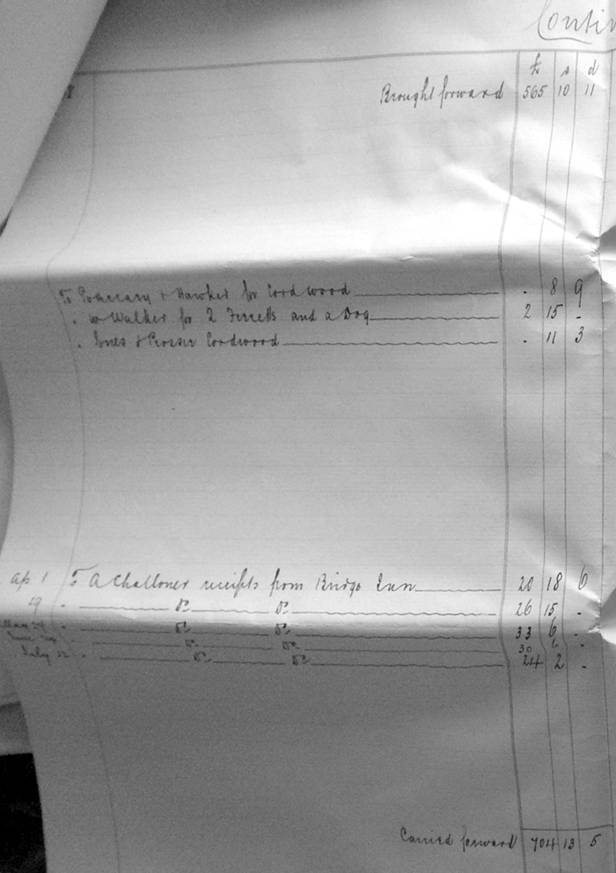 Contin
£ s d
Brought forward 565 10 11
To & Hawker for Cordwood . 8 9
" W Walker for 2 Ferrets and a Dog 2 15 -
" Jones & Prosser Cordwood . 11 3
Ap 1 To A Challoner receipts from Bridge Inn 20 18 6
29 " Do Do 26 15 -
May 29 " Do Do 33 6 -
" Do Do 30 6 -
July " Do Do 24 2 -
Carried forward 704 13 5